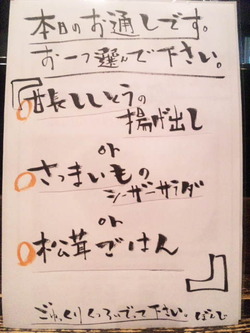 本日のお通しです。
お一つ選んで下さい。
甘長ししとうの
揚げ出し
or
さつまいもの
シーザーサラダ
or
松茸ごはん
ごゆっくりくつろいで下さい。